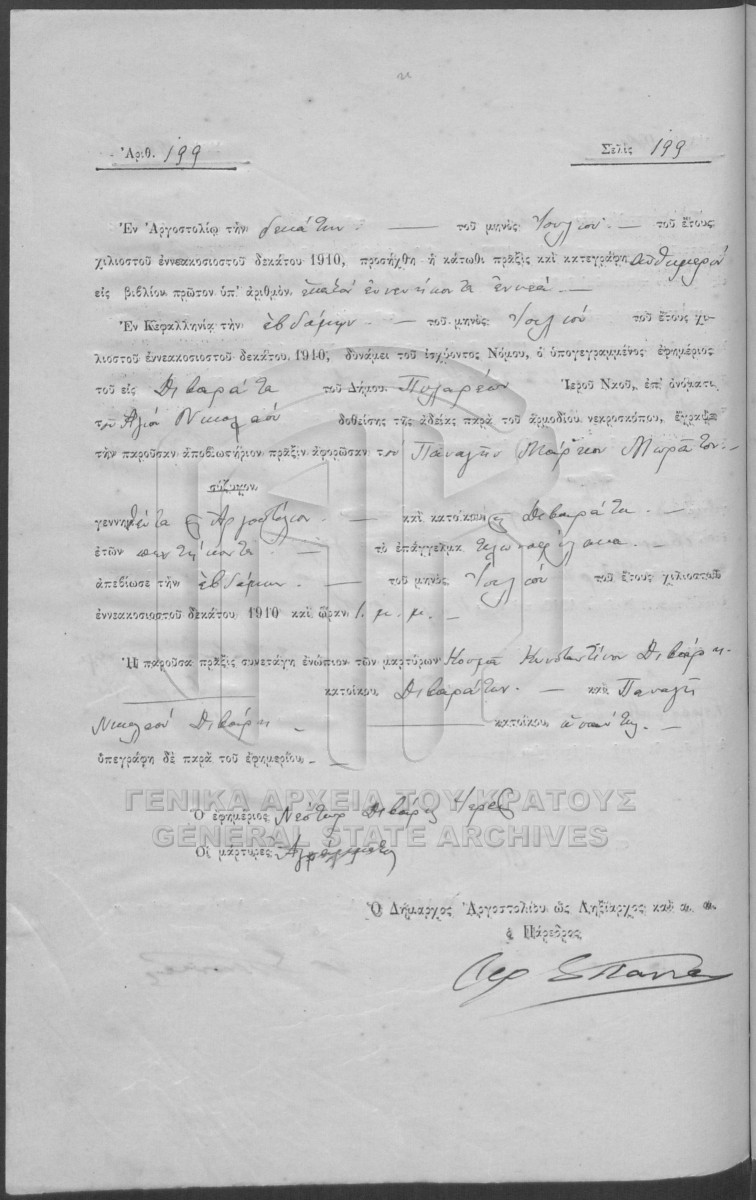 Ἀριθ. 199
Σελὶς 199
Ἐν Ἀργοστολίῳ τὴν δεκάτην. — τοῦ μηνὸς Ἰουλίου. — τοῦ ἔτους
χιλιοστοῦ ἐννεακοσιοστοῦ δεκάτου 1910, προσήχθη ἡ κάτωθι πρᾶξις καὶ κατεγράφη αὐθημερόν
εἰς βιβλίον πρῶτον ὑπ' ἀριθμὸν ἑκατόν ἐννενήκοντα ἐννέα. —
Ἐν Κεφαλληνίᾳ τὴν ἑβδόμην. — τοῦ μηνὸς Ἰουλίου τοῦ ἔτους χι-
λιοστοῦ ἐννεακοσιοστοῦ δεκάτου 1910, δυνάμει τοῦ ἰσχύοντος Νόμου, ὁ ὑπογεγραμμένος ἐφημέριος
τοῦ εἰς Διβαράτα τοῦ Δήμου Πυλαρέων Ἱεροῦ Ναοῦ, ἐπ' ὀνόματι
τοῦ Ἁγίου Νικολάου δοθείσης τῆς ἀδείας παρὰ τοῦ ἁρμοδίου νεκροσκόπου, ἔγραψα
τὴν παροῦσαν ἀποβιωτήριον πρᾶξιν ἀφορῶσαν τὸν Παναγῆν Μαρίνου —
σύζυγον
γεννηθέντα εἰς Ἀργοστόλιον. — καὶ κατοικοῦν εἰς Διβαράτα. —
ἐτῶν πεντήκοντα. — τὸ ἐπάγγελμα τελωνοφύλακα. —
ἀπεβίωσε τὴν ἑβδόμην. — τοῦ μηνὸς Ἰουλίου τοῦ ἔτους χιλιοστοῦ
ἐννεακοσιοστοῦ δεκάτου 1910 καὶ ὥραν 1. μ. μ. —
Ἡ παροῦσα πρᾶξις συνετάγη ἐνώπιον τῶν μαρτύρων Κοσμᾶ Κωνσταντίνου Διβάρη
κατοίκου Διβαράτων. — καὶ Παναγῆ
Νικολάου Διβάρη — κατοίκου —
ὑπεγράφη δὲ παρὰ τοῦ ἐφημερίου. —
ΓΕΝΙΚΑ ΑΡΧΕΙΑ ΤΟΥ ΚΡΑΤΟΥΣ
Ὁ ἐφημέριος Νέστωρ Διβάρης Ἱερεύς
GENERAL STATE ARCHIVES
Οἱ μάρτυρες Ἀγράμματοι
Ὁ Δήμαρχος Ἀργοστολίου ὡς Ληξίαρχος καὶ ἀ. ἀ.
ὁ Πάρεδρος